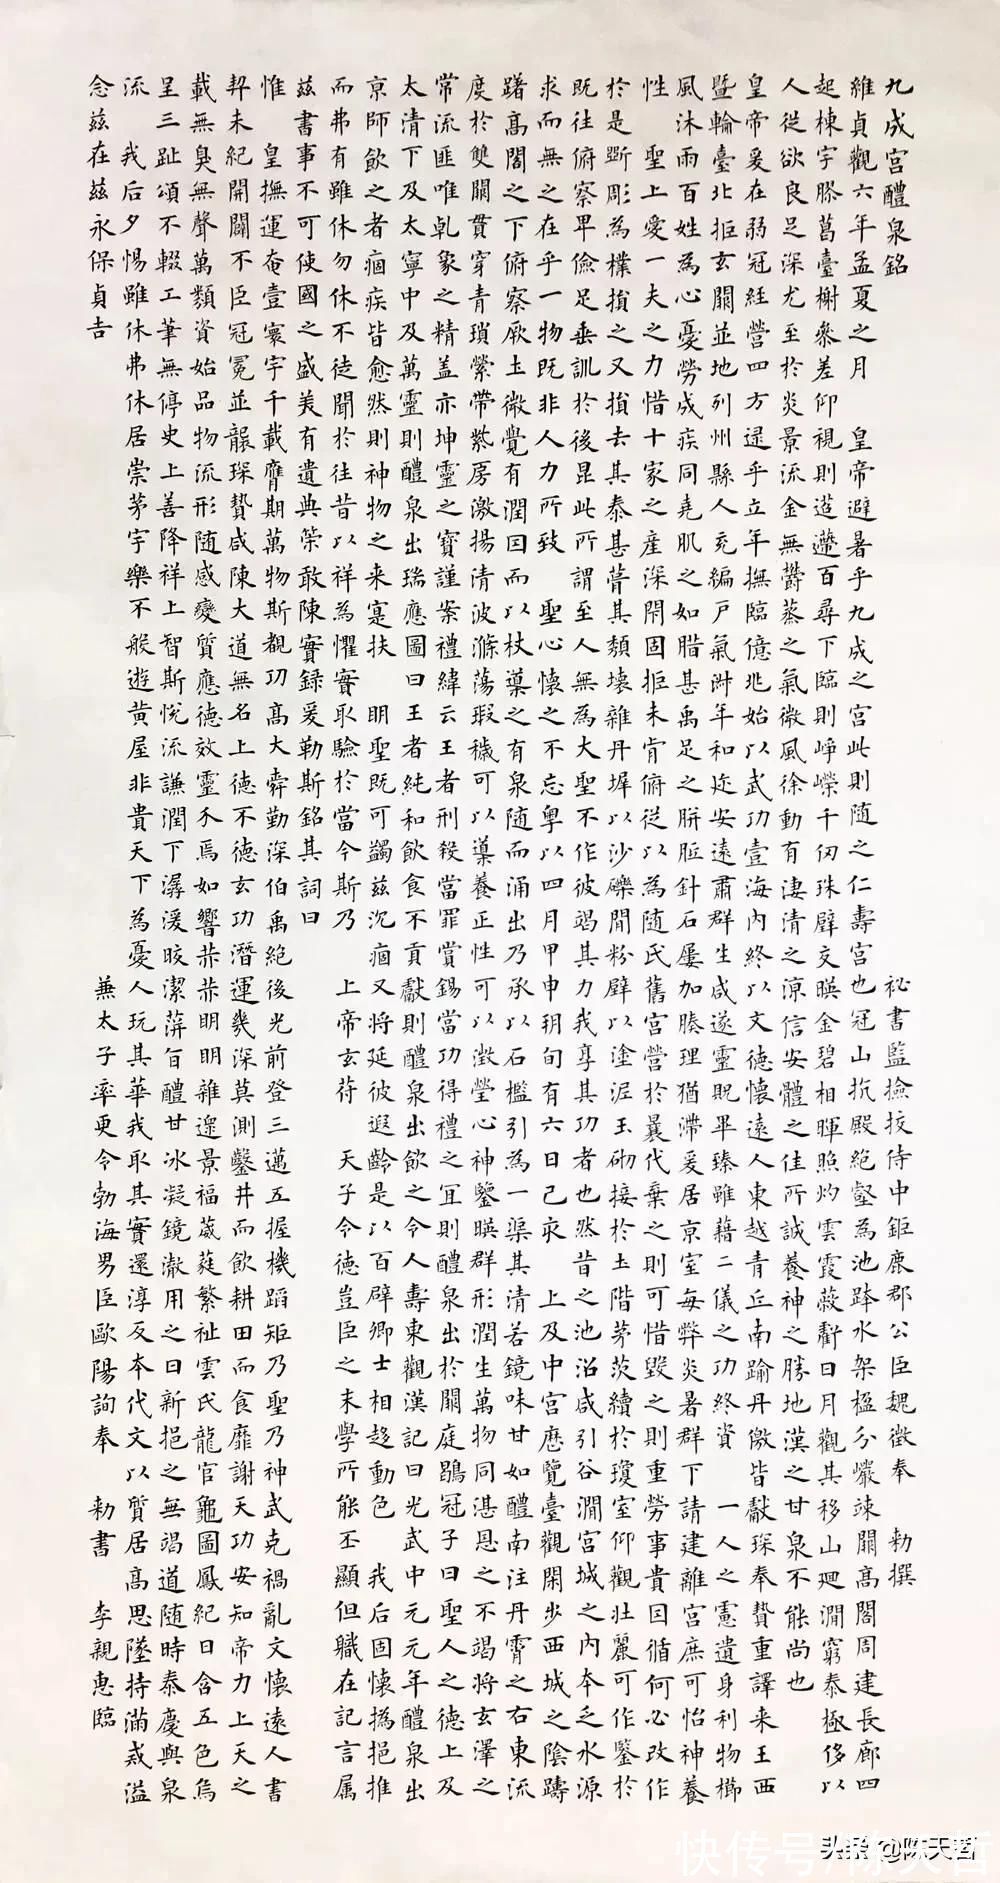 九成宮醴泉銘 秘書監撿挍侍中鉅鹿郡公臣魏徵奉 勅撰
維貞觀六年孟夏之月 皇帝避暑乎九成之宮此則隨之仁壽宮也冠山抗殿絕壑為池跨水架楹分巖竦闕高閣周建長廊四
起棟宇膠葛臺榭參差仰視則迢遰百尋下臨則崢嶸千仞珠璧交暎金碧相暉照灼雲霞蔽虧日月觀其移山迴澗窮泰極侈以
人從欲良足深尤至於炎景流金無鬱蒸之氣微風徐動有淒清之涼信安體之佳所誠養神之勝地漢之甘泉不能尚也
皇帝爰在弱冠經營四方逮乎立年撫臨億兆始以武功壹海內終以文德懷遠人東越青丘南踰丹徼皆獻琛奉贄重譯来王西
暨輪臺北拒玄闕並地列州縣人充編戶氣淑年和迩安遠肅群生咸遂靈貺畢臻雖藉二儀之功終資 一人之慮遺身利物櫛
風沐雨百姓為心憂勞成疾同堯肌之如腊甚禹足之胼胝針石屢加腠理猶滯爰居京室每弊炎暑群下請建離宮庶可怡神養
性 聖上愛一夫之力惜十家之產深閇固拒未肯俯從以為随氏舊宮營於曩代棄之則可惜毀之則重勞事貴因循何必改作
於是斲彫為樸損之又損去其泰甚葺其頹壞雜丹墀以沙礫間粉壁以塗泥玉砌接於土階茅茨續於瓊室仰觀壯麗可作鑒於
既往俯察卑儉足垂訓於後昆此所謂至人無為大聖不作彼竭其力我享其功者也然昔之池沼咸引谷澗宮城之內本乏水源
求而無之在乎一物既非人力所致 聖心懷之不忘粵以四月甲申朔旬有六日己亥 上及中宮歷覽臺觀閑步西城之陰躊
躇高閣之下俯察厥土微覺有潤因而以杖導之有泉随而涌出乃承以石檻引為一渠其清若鏡味甘如醴南注丹霄之右東流
度於雙闕貫穿青瑣縈帶紫房激揚清波滌蕩瑕穢可以導養正性可以澂瑩心神鑒暎群形潤生萬物同湛恩之不竭將玄澤之
常流匪唯乹象之精盖亦坤靈之寶謹案禮緯云王者刑殺當罪賞錫當功得禮之宜則醴泉出於闕庭鶡冠子曰聖人之德上及
太清下及太寧中及萬靈則醴泉出瑞應圖曰王者純和飲食不貢獻則醴泉出飲之令人壽東觀漢記曰光武中元元年醴泉出
京師飲之者痼疾皆愈然則神物之来寔扶 明聖既可蠲茲沉痼又將延彼遐齡是以百辟卿士相趍動色 我后固懷撝挹推
而弗有雖休勿休不徒聞於往昔以祥為懼實取驗於當今斯乃 上帝玄符 天子令德豈臣之末學所能丕顯但職在記言属
茲書事不可使國之盛美有遺典策敢陳實録爰勒斯銘其詞曰
惟 皇撫運奄壹寰宇千載膺期萬物斯覩功高大舜勤深伯禹絕後光前登三邁五握機蹈矩乃聖乃神武克禍亂文懷遠人書
契未紀開闢不臣冠冕並襲琛贄咸陳大道無名上德不德玄功潛運幾深莫測鑿井而飲耕田而食靡謝天功安知帝力上天之
載無臭無聲萬類資始品物流形随感變質應德效靈介焉如響赫赫明明雜遝景福葳蕤繁祉雲氏龍官龜圖鳳紀日含五色烏
呈三趾頌不輟工筆無停史上善降祥上智斯悅流謙潤下潺湲皎潔蓱旨醴甘冰凝鏡澈用之日新挹之無竭道随時泰慶與泉
流 我后夕惕雖休弗休居崇茅宇樂不般遊黃屋非貴天下為憂人玩其華我取其實還淳反本代文以質居高思墜持滿戒溢
念茲在茲永保貞吉 兼太子率更令勃海男臣歐陽詢奉 勅書 李親惠臨
快传号/陈天哲
头条 @陈天哲